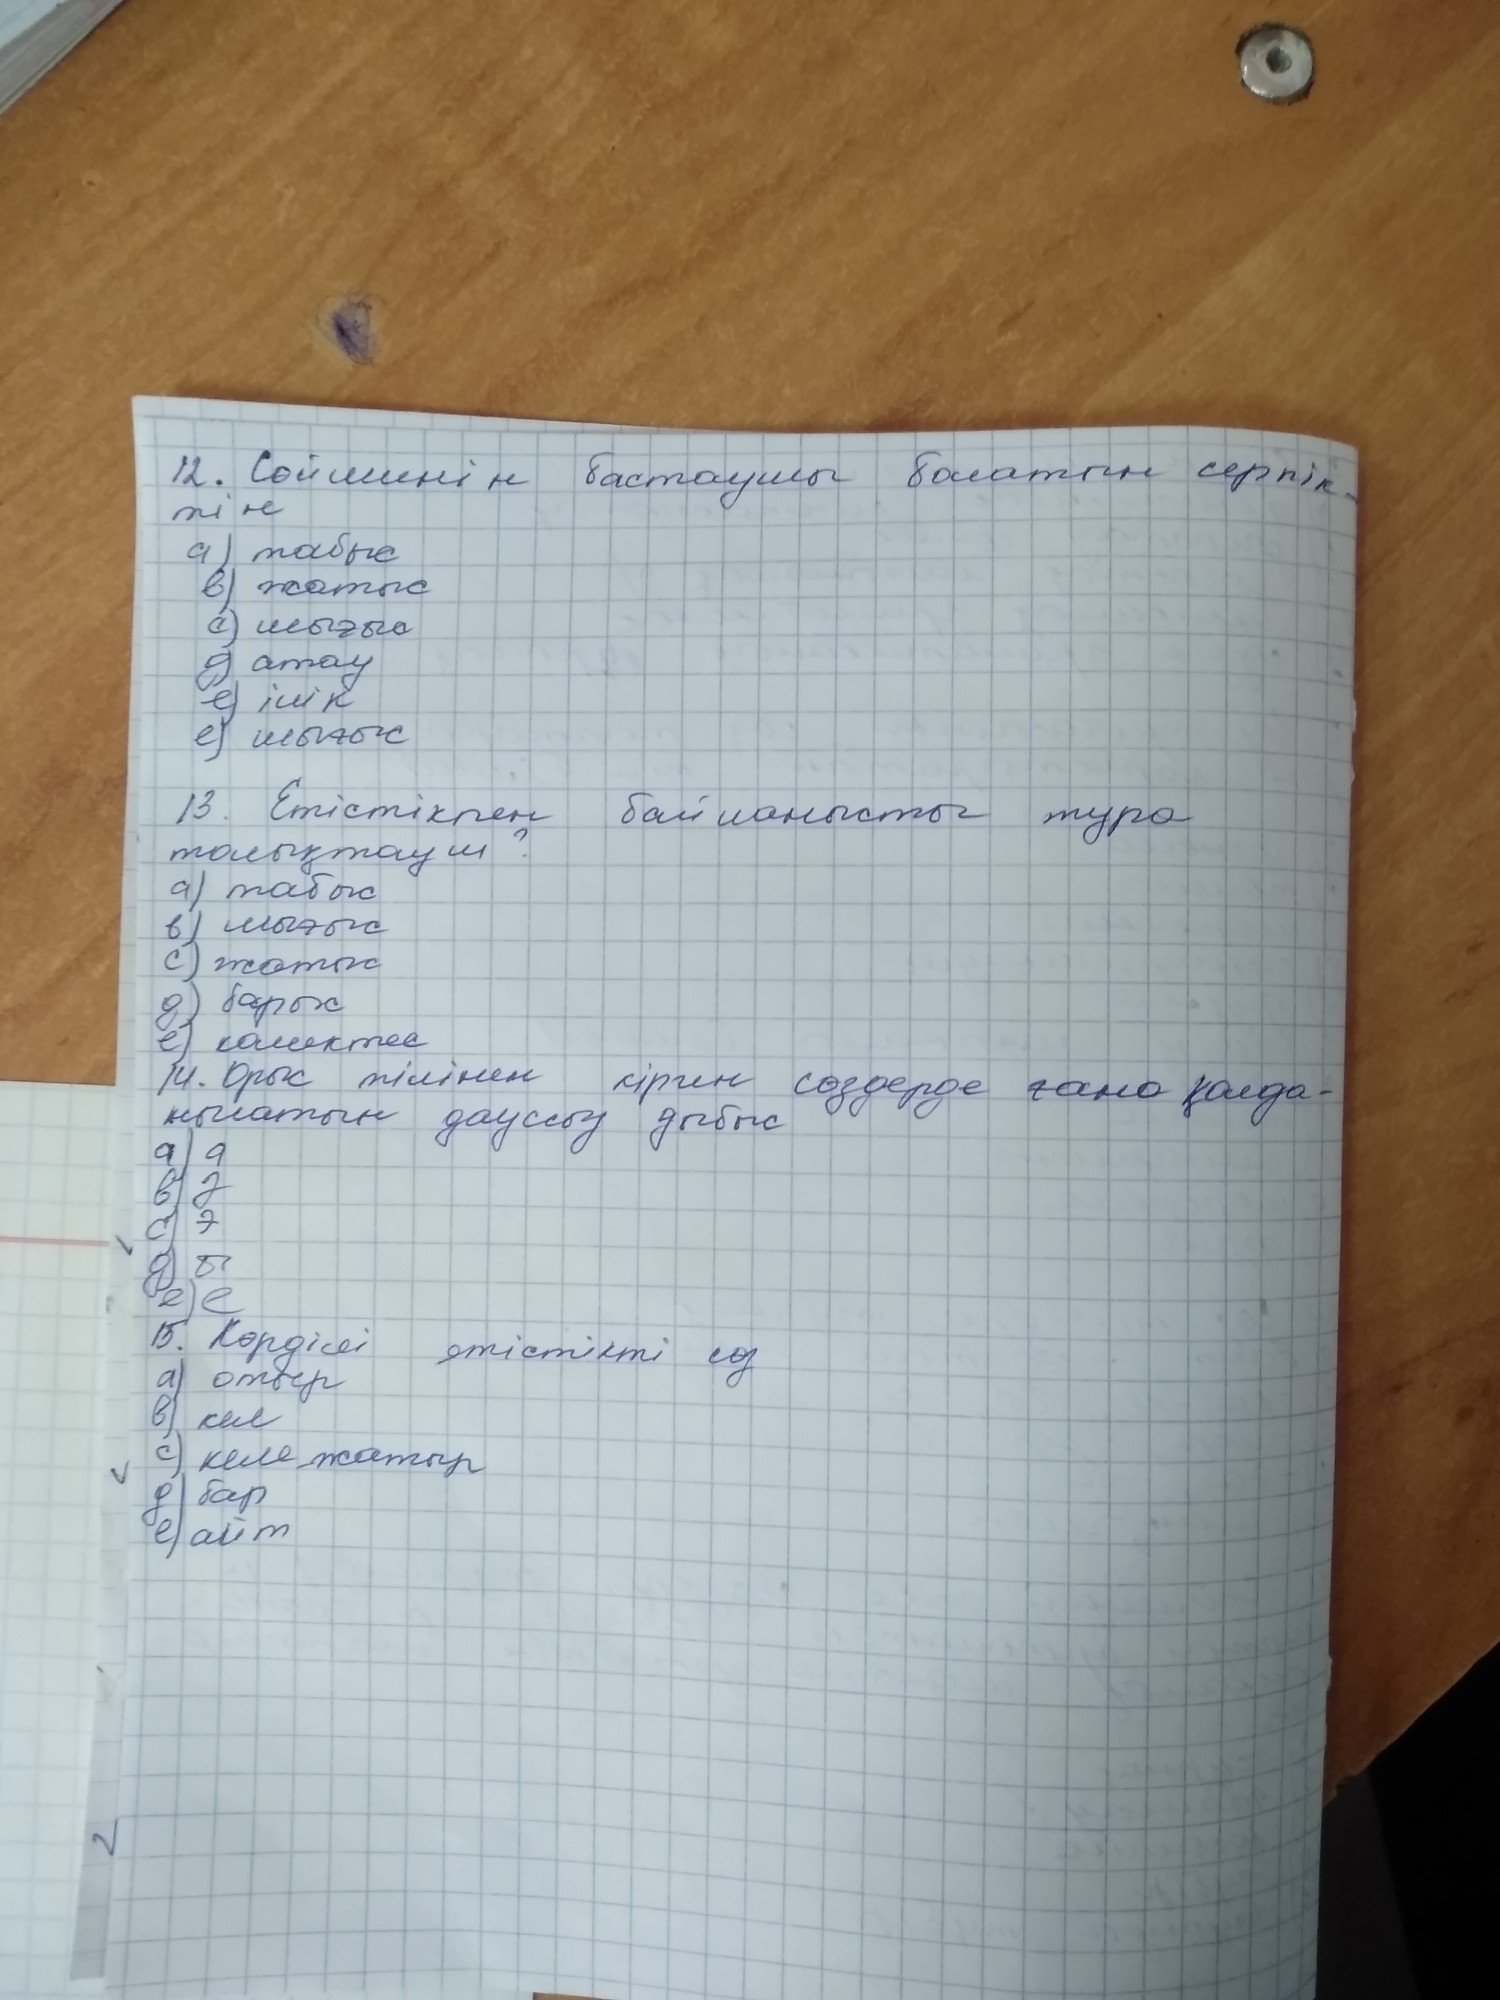 12. Сойлменін бастаушы болатын серпік-
тін
а) табыс
в) жатыс
с) шығыс
д) атау
е) ілік
е) шығыс
13. Етістікпен байланысты тура
толықтауш?
а) табыс
в) шығыс
с) жатыс
д) барыс
е) комектес
14. Орыс тілінен кірген сөздерде ғана қолда-
нылатын дауссыз дыбыс
а) а
в)
с) э
д) ы
е) е
15. Кәрділі етістікті сөз
а) отыр
в) кел
с) келе жатыр
д) бар
е) айт